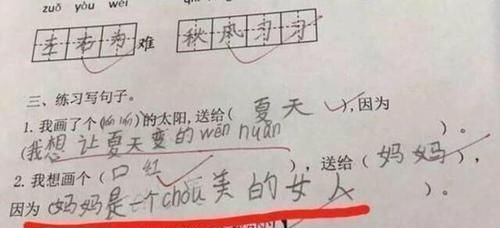 zuǒ yòu wéi
左右为难
秋风习习
三、练习写句子。
1. 我画了个( )的太阳,送给(夏天),因为
(我想让夏天变的wēn nuǎn )。
2. 我想画个(口红),送给(妈妈),
因为(妈妈是一个chǒu美的女人)。